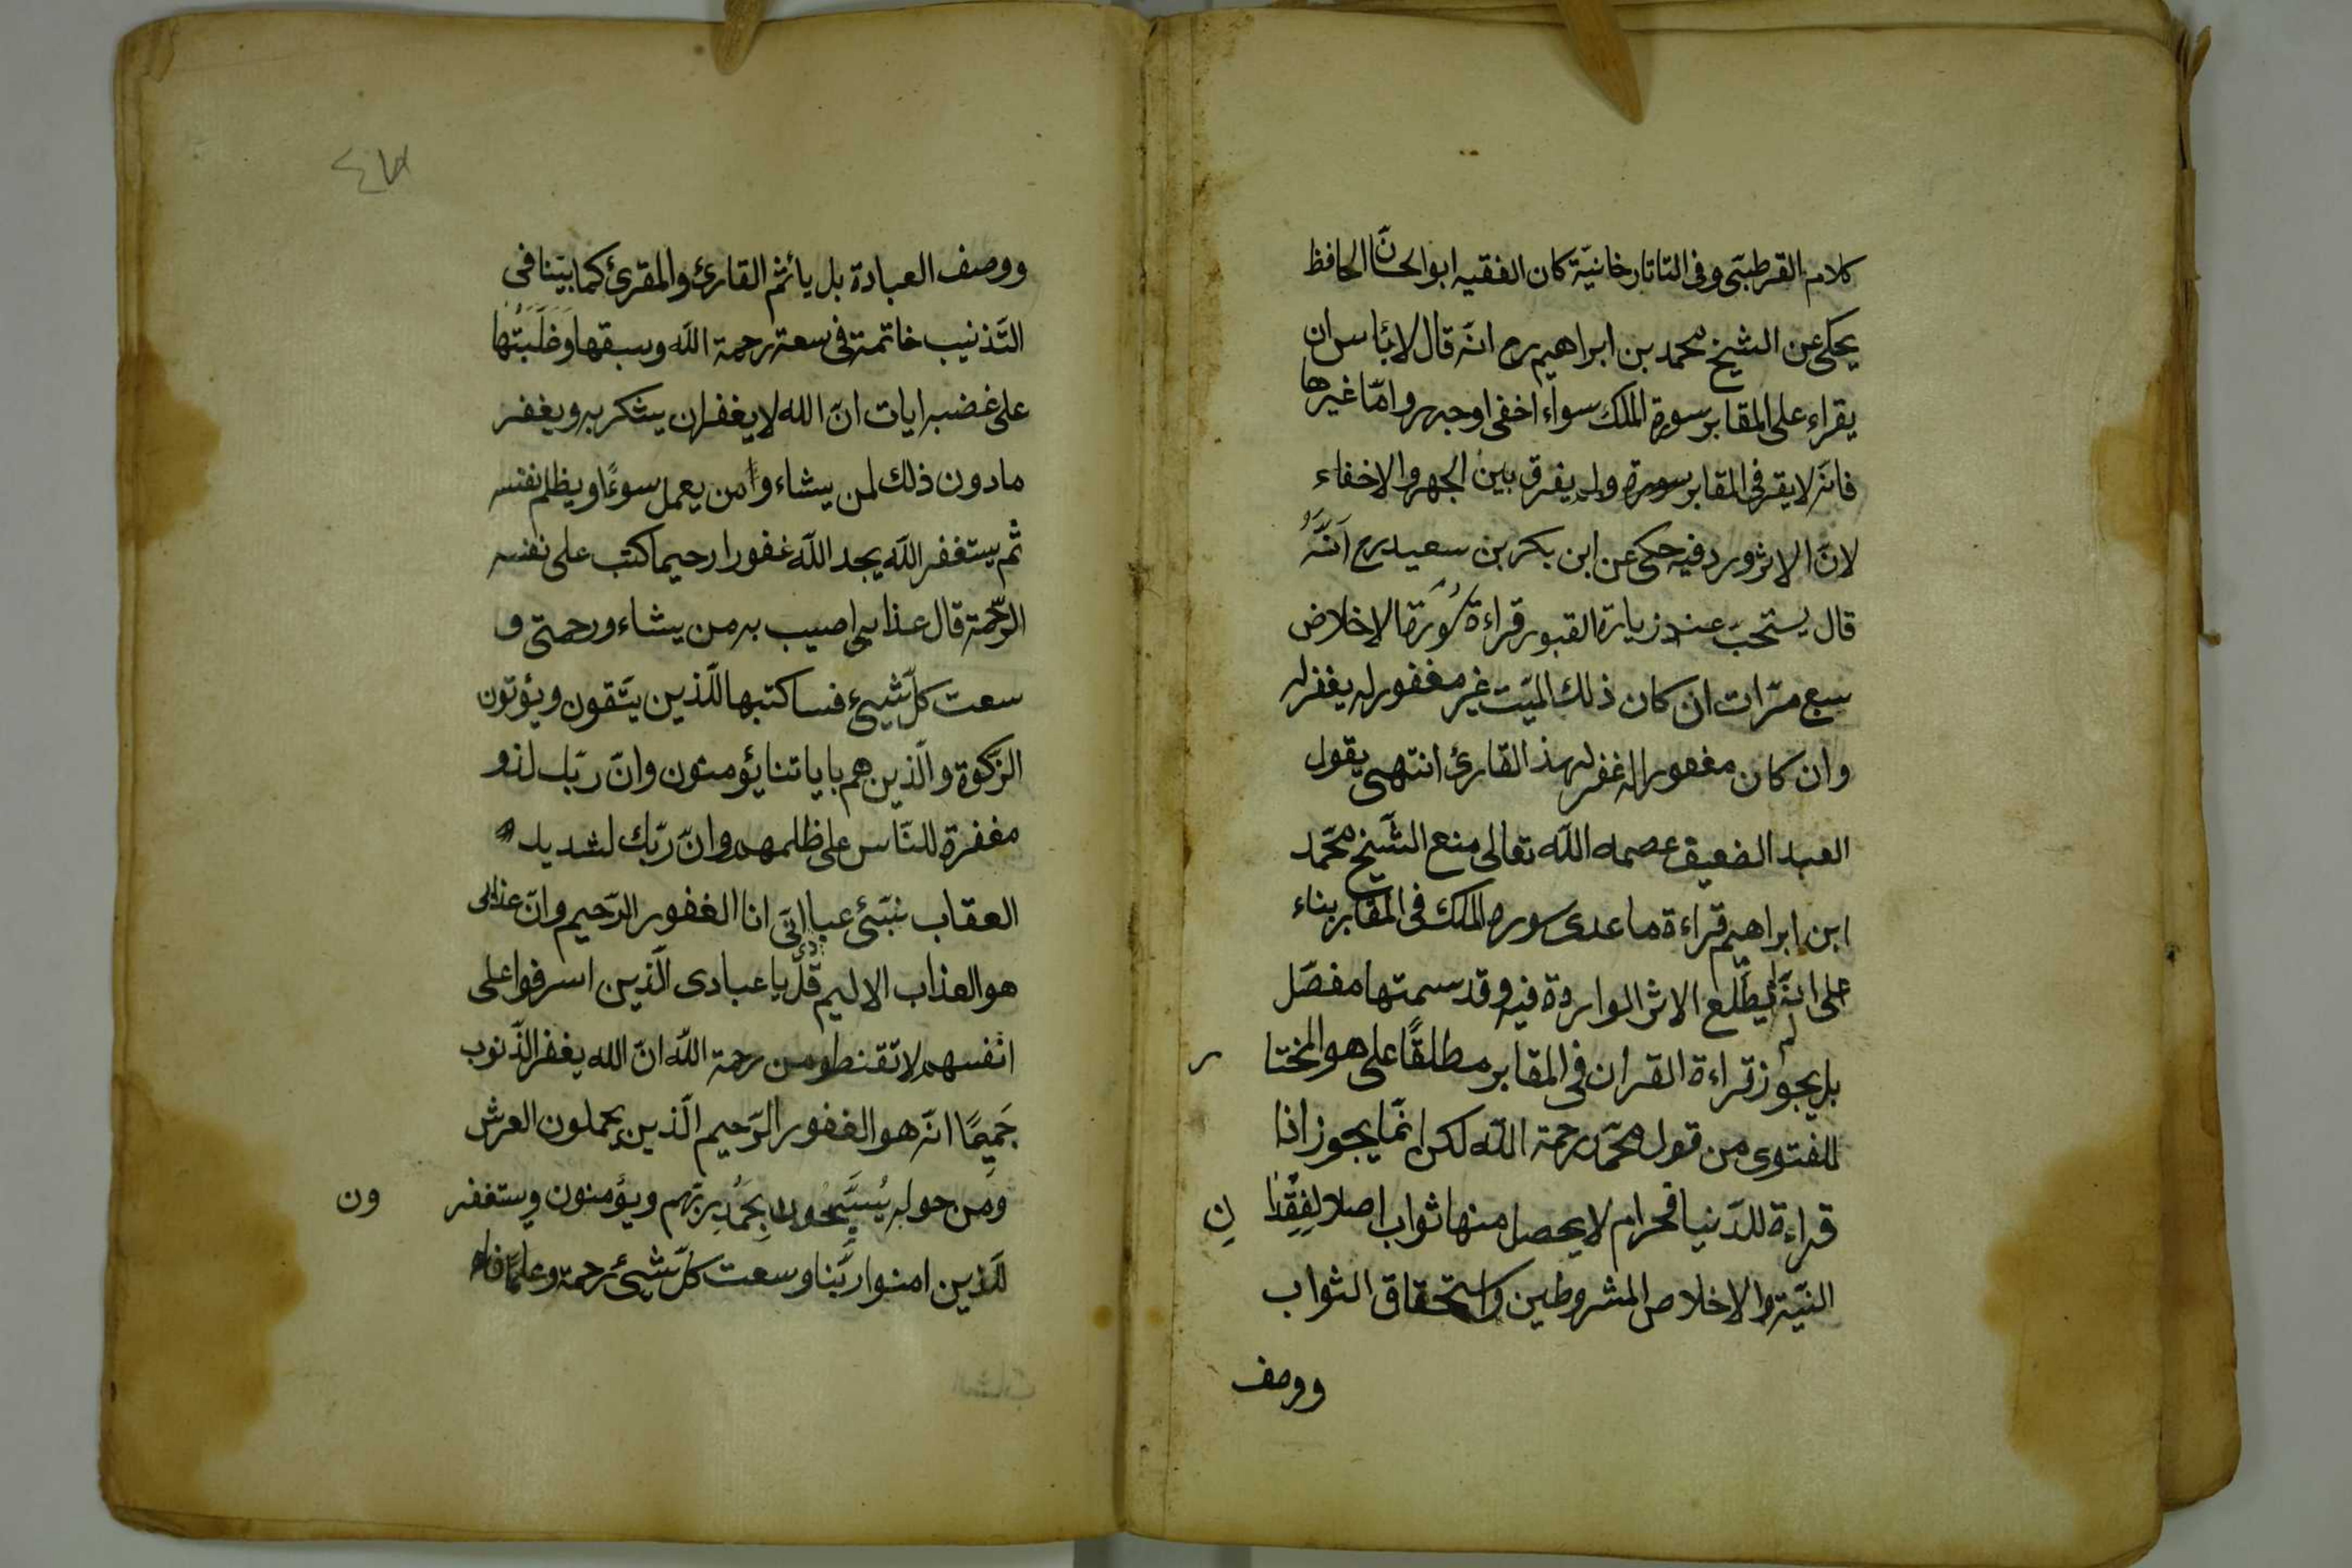 كلام القرطبىّ وفى التاتارخانيّة كان الفقيه ابو الحسانّ الحافظ
يحكى عن الشيخ محمد بن ابراهيم رح انّه قال لا بئاس ان
يقراء على المقابر سورة الملك سواء اخفى او جهر وامّا غيرها
فانّه لا يقرء فى المقابر سورة ولم يفرق بين الجهر والاخفاء
لانّ الاثر ورد فيه حكى عن ابن بكر بن سعيد رح اَنَّهُ
قال يستحبّ عند زيارة القبور قراءة سُورَة الاخلاص
سبع مرّات ان كان ذلك الميّت غير مغفور له يغفر له
وان كان مغفورا له غفر لهذ القارئ انتهى يقول
العبد الضعيف عصمه الله تعالى منع الشّيخ محمّد
ابن ابراهيم قراءة ما عدى سوره الملك فى المقابر بناء
على انّه لم يطّلع الاثر الواردة فيه وقد سمتها مفصّل
بل يجوز قراءة القران فى المقابر مطلقًا على هو المختا ر
للفتوى من قول محمّد رحمة الله لكن انّما يجوز اذا
قراءة للدّنيا فحرام لا يحصل منها ثواب اصلا لِفِقْدَا نِ
النيّة والاخلاص المشروطين واستحقاق الثواب
ووصف
٤٨
ووصف العبادة بل يأثم القارئ والمقرئ كما بيّنا فى
التّذنيب خاتمة فى سعة رحمة الله وسبقها وَغَلَبَتُهَا
على غضبه ايات انّ الله لا يغفر ان يشكر به ويغفر
ما دون ذلك لمن يشاء وامن يعمل سوءًا ويظلم نفسه
ثم يستغفر الله يجد الله غفورا رحيما كتب على نفسه
الرّحمة قال عذابى اصيب به من يشاء ورحمتى و
سعت كلّ شيىء فساكتبها للّذين يتّقون ويؤتون
الزّكوة والّذين هم باياتنا يؤمنون وانّ ربّك لذو
مغفرة للنّاس على ظلمهم وانّ ربّك لشديد
العقاب نبّئ عبادى انّى انا الغفور الرّحيم وانّ عذابى
هو العذاب الاليم قل يا عبادى الّذين اسرفوا على
انفسهم لا تقنطو من رحمة الله انّ الله يغفر الذّنوب
جَمِيعًا انّه هو الغفور الرّحيم الّذين يحملون العرش
ومن حوله يُسَبِّحُون بِحَمْدِ ربّهم ويؤمنون ويستغفر ون
للّذين امنوا ربّنا وسعت كلّ شيىء رحمة وعلمًا فاه